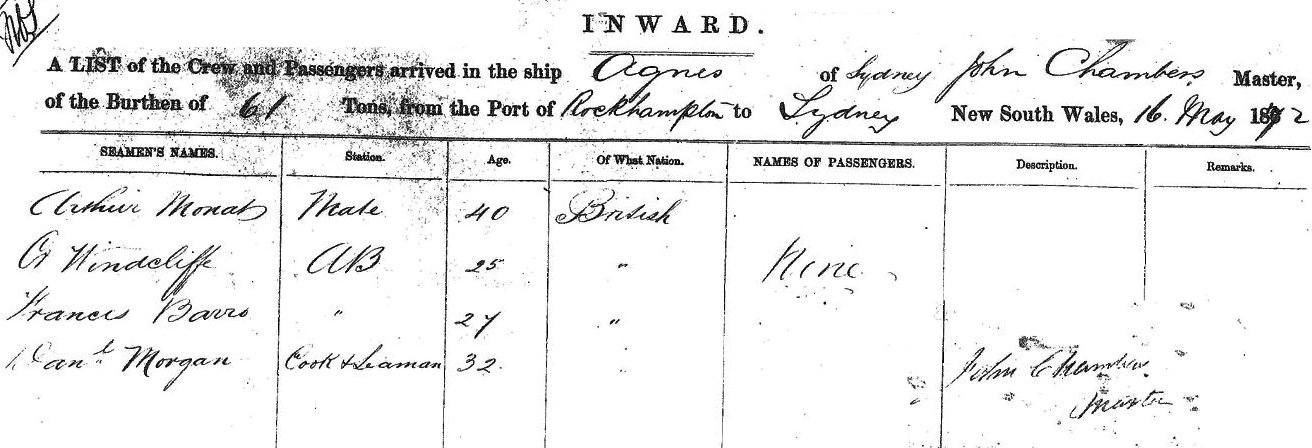 INWARD.
A LIST of the Crew and Passengers arrived in the ship Agnes of Sydney John Chambers Master,
of the Burthen of 61 Tons, from the Port of Rockhampton to Sydney New South Wales, 16 May 1872
SEAMEN'S NAMES. Station. Age. Of What Nation. NAMES OF PASSENGERS. Description. Remarks.
Arthur Monat Mate 40 British
Hindcliffe AB 25 " None
Francis Barro " 27 "
Danl Morgan Cook & Seaman 32
John Chambers
Master